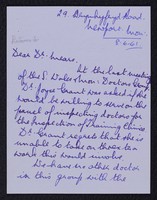 Newport, Mon.
Dear Dr. Mears,
At the last meeting
of the S. Wales & Mon. Doctors Group
Dr. Joyce Grant was asked if she
would be willing to serve on the
panel of inspecting doctors for
the inspection of training things
Dr. Grant regrets that she is
unable to take on these ten
work this would involve
We have no other doctor
in this group with the